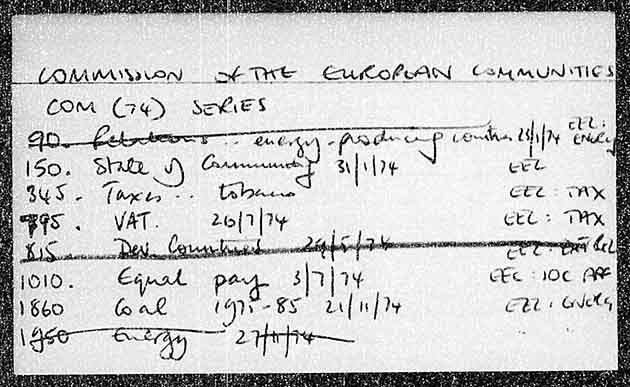 COMMISSION OF THE EUROPEAN COMMUNITIES
COM (74) SERIES
90. Relations .. energy-producing countries 23/1/74 EEC: ENERGY
150. State of Community 31/1/74 EEC
345. Taxes .. tobacco EEC: TAX
795. VAT. 26/7/74 EEC: TAX
815. Dev Countries 29/5/74 EEC:
1010. Equal pay 3/7/74 EEC: SOC AFF
1860 Coal 1975-85 21/11/74 EEC: ENERGY
1950 Energy 27/11/74